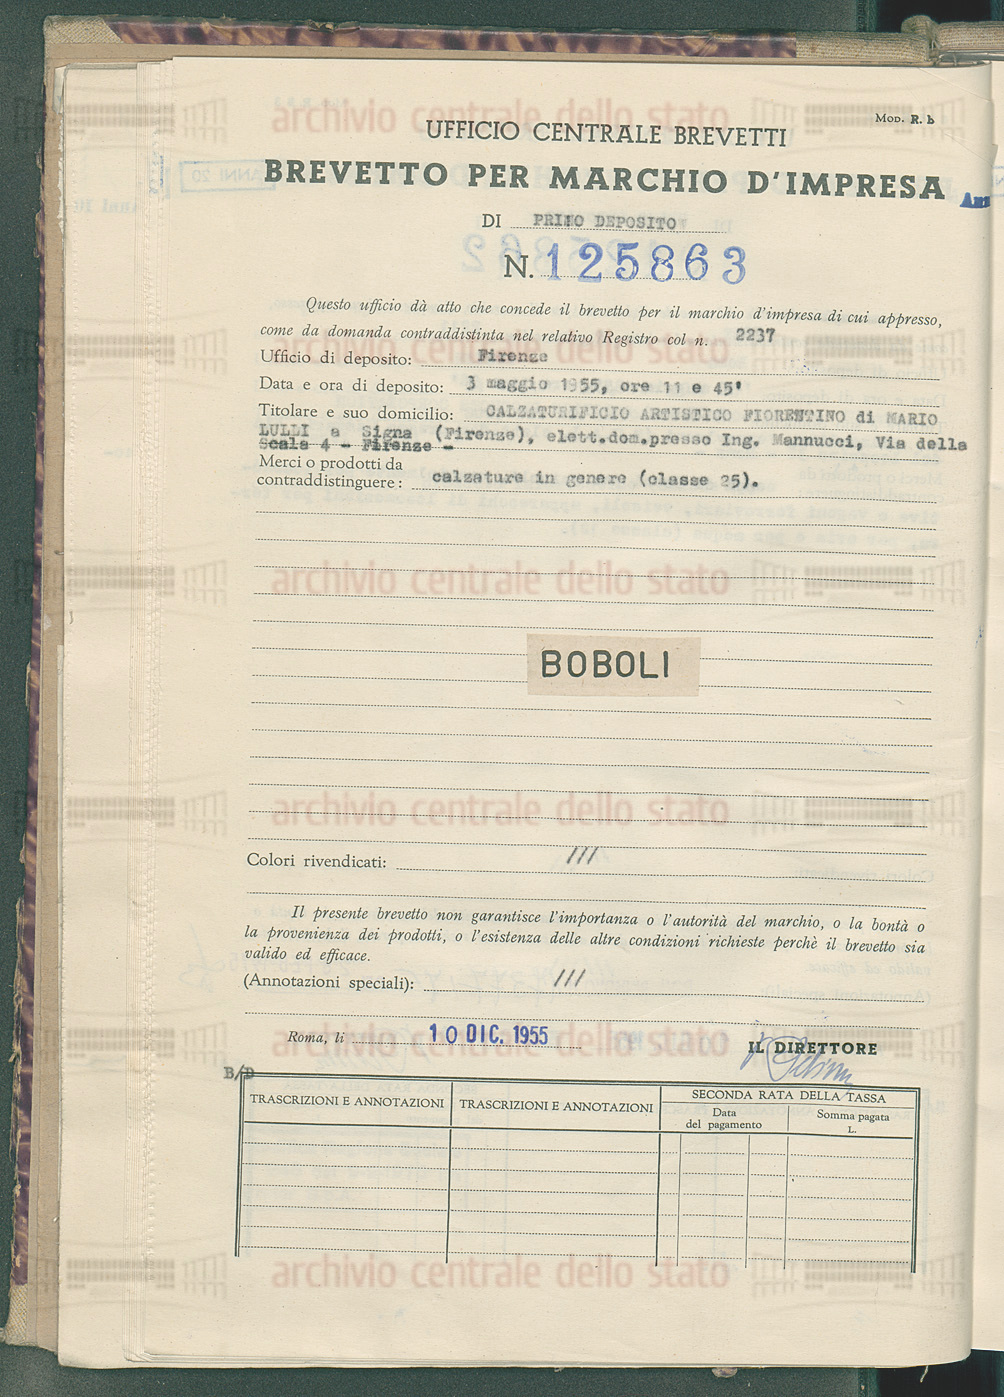 MOD. R. b
UFFICIO CENTRALE BREVETTI
BREVETTO PER MARCHIO D'IMPRESA
DI PRIMO DEPOSITO
N. 125863
Questo ufficio dà atto che concede il brevetto per il marchio d'impresa di cui appresso,
come da domanda contraddistinta nel relativo Registro col n. 2237
Ufficio di deposito: Firenze
Data e ora di deposito: 3 maggio 1955, ore 11 e 45'
Titolare e suo domicilio: CALZATURIFICIO ARTISTICO FIORENTINO di MARIO
LULLI a Signa (Firenze), elett.dom.presso Ing. Mannucci, Via della
Scala 4 - Firenze -
Merci o prodotti da
contraddistinguere: calzature in genere (classe 25).
BOBOLI
Colori rivendicati: ///
Il presente brevetto non garantisce l'importanza o l'autorità del marchio, o la bontà o
la provenienza dei prodotti, o l'esistenza delle altre condizioni richieste perchè il brevetto sia
valido ed efficace.
(Annotazioni speciali): ///
Roma, li 10 DIC. 1955
IL DIRETTORE
B/D
TRASCRIZIONI E ANNOTAZIONI TRASCRIZIONI E ANNOTAZIONI SECONDA RATA DELLA TASSA
Data del pagamento Somma pagata L.
archivio centrale dello stato
archivio centrale dello stato
archivio centrale dello stato
archivio centrale dello stato
archivio centrale dello stato
archivio centrale dello stato